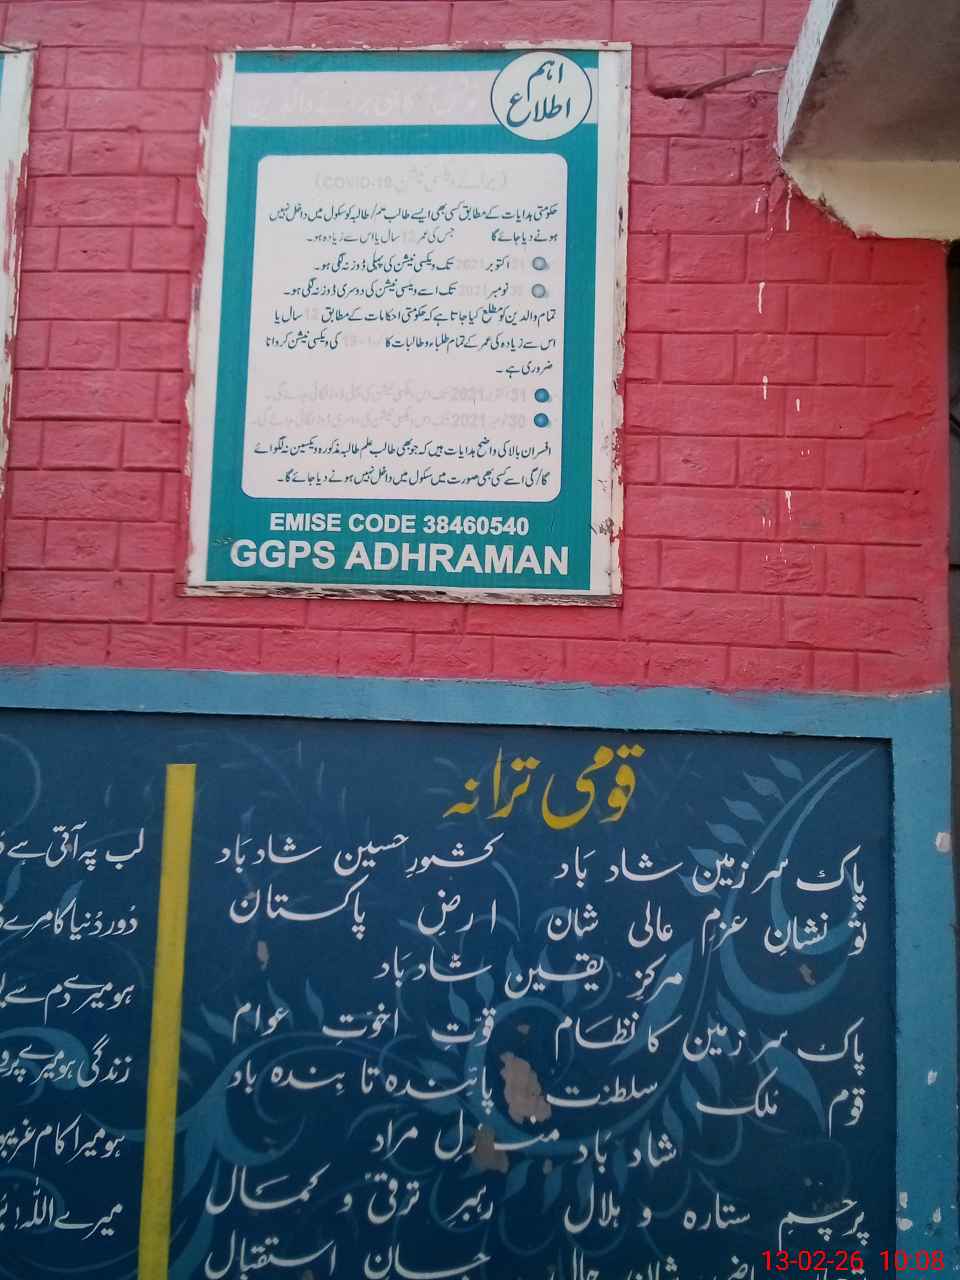 اہم
اطلاع
(COVID-19)
حکومتی ہدایات کے مطابق کسی بھی ایسے طالب علم/طالبہ کو سکول میں داخل نہیں
ہونے دیا جائے گا جس کی عمر 12 سال یا اس سے زیادہ ہو۔
اکتوبر 2021 تک ویکسی نیشن کی پہلی ڈوز نہ لگی ہو۔
نومبر 2021 تک اسے ویکسی نیشن کی دوسری ڈوز نہ لگی ہو۔
تمام والدین کو مطلع کیا جاتا ہے کہ حکومتی احکامات کے مطابق 12 سال یا
اس سے زیادہ کی عمر کے تمام طلباء و طالبات کا کی ویکسی نیشن کروانا
ضروری ہے۔
31 اکتوبر 2021 تک
30 نومبر 2021 تک
افسران بالا کی واضح ہدایات ہیں کہ جو بھی طالب علم طالبہ مذکورہ ویکسین نہ لگوائے
گا/گی اسے کسی بھی صورت میں سکول میں داخل نہیں ہونے دیا جائے گا۔
EMISE CODE 38460540
GGPS ADHRAMAN
قومی ترانہ
پاک سرزمین شاد باد کشورِ حسین شاد باد
تُو نشانِ عزمِ عالی شان ارضِ پاکستان
مرکزِ یقین شاد باد
پاک سرزمین کا نظام قوّتِ اخوّتِ عوام
قوم ملک سلطنت پائندہ تابندہ باد
شاد باد منزلِ مراد
پرچمِ ستارہ و ہلال رہبرِ ترقی و کمال
شانِ حال جانِ استقبال
لب پہ آتی ہے
دُور دُنیا کا مِرے
ہو میرے دم سے
زندگی ہو میری
ہو میرا کام
میرے اللہ!
13-02-26 10:08